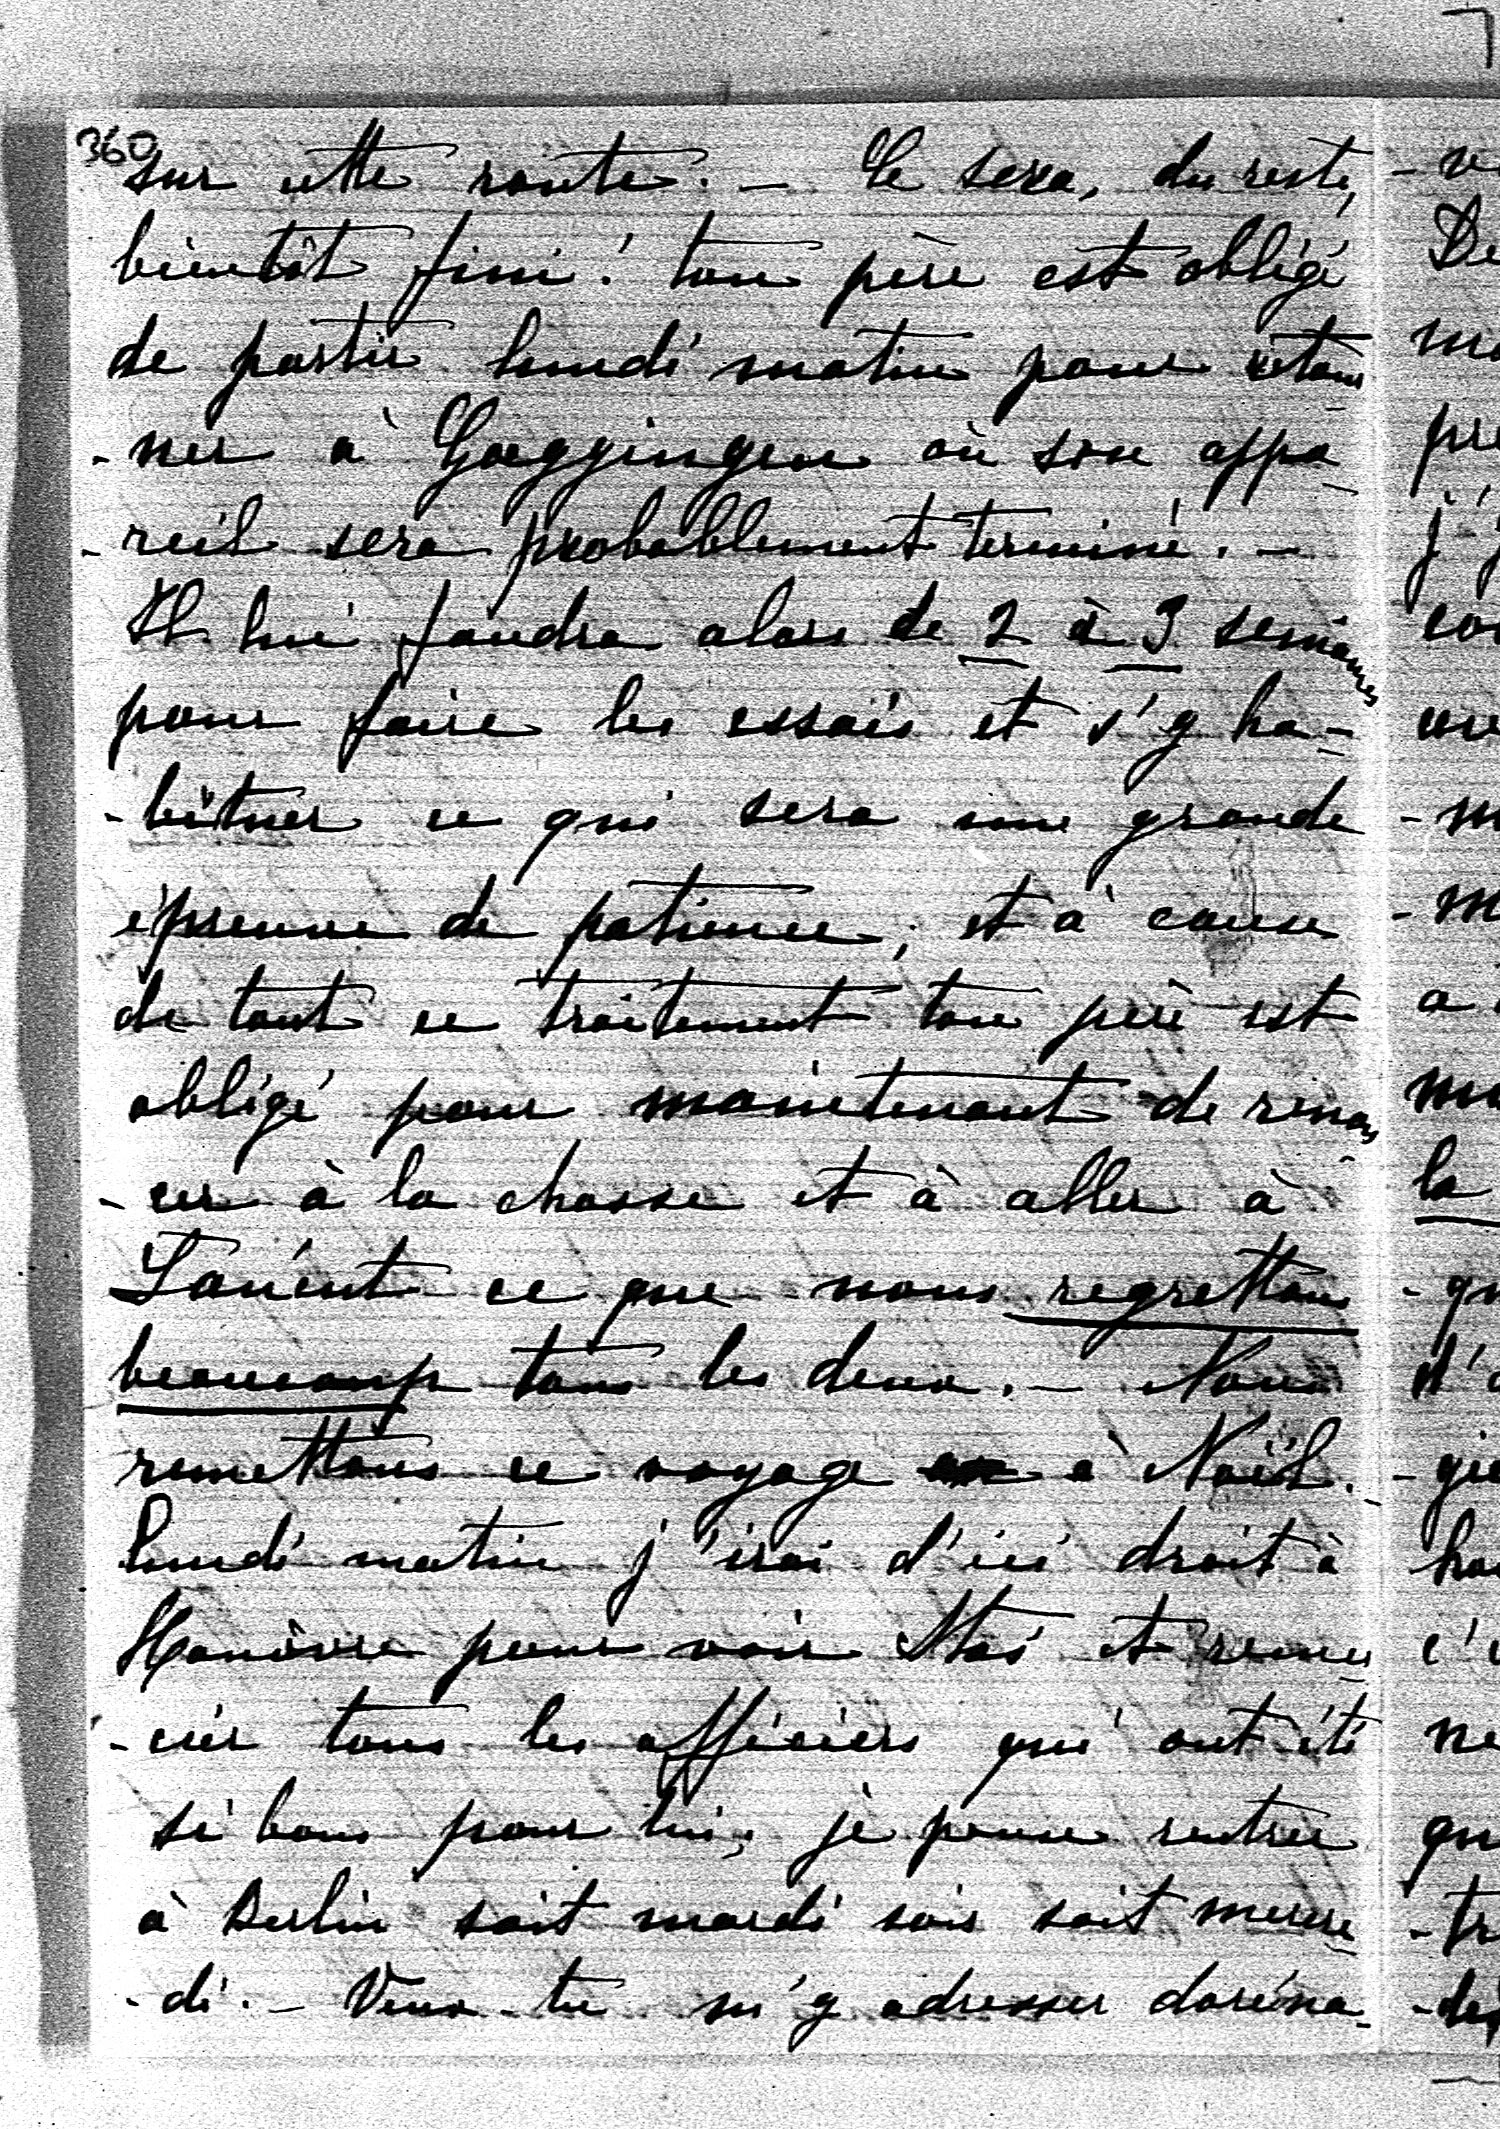 360
sur cette route. — Ce sera, du reste,
bientôt fini! ton père est obligé
de partir lundi matin pour retour
-ner à Goeggingen où son appa
-reil sera probablement terminé. —
Il lui faudra alors de 2 à 3 semaines
pour faire les essais et s'y ha-
-bituer ce qui sera une grande
épreuve de patience; et à cause
de tout ce traitement ton père est
obligé pour maintenant de renon
-cer à la chasse et à aller à
ce que nous regrettons
beaucoup tous les deux. — Nous
remettons ce voyage à Noël.
Lundi matin j'irai d'ici droit à
Hanovre pour voir Stas et remer
-cier tous les officiers qui ont été
si bons pour lui; je pense rentrer
à Berlin soit mardi soir soit mercre
-di. — Veux-tu m'y adresser doréna-